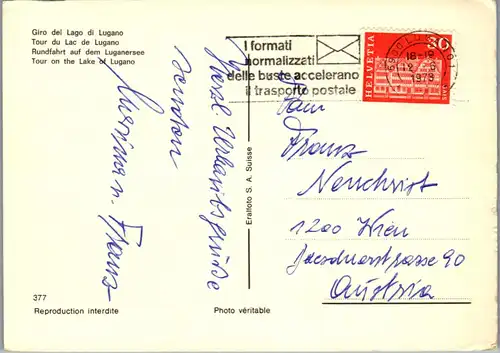 Giro del Lago di Lugano
Tour du Lac de Lugano
Rundfahrt auf dem Luganersee
Tour on the Lake of Lugano
I formati
normalizzati
delle buste accelerano
il trasporto postale
6900 LUGANO
18-19
12. 9.
1973
HELVETIA
30
Fam
Franz
Neuchrist
1200 Wien
90
Austria
Herzl. Urlaubsgrüße
senden
u. Franz
Eralfoto S. A. Suisse
377
Reproduction interdite
Photo véritable